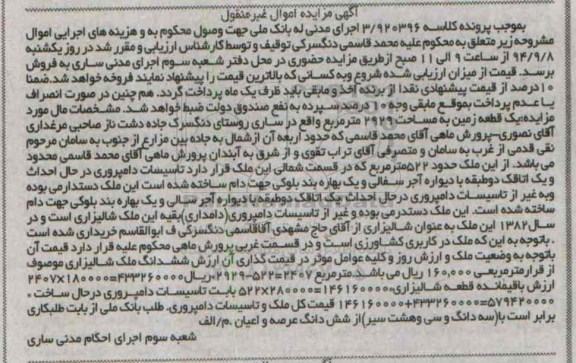 آگهی مزایده اموال غیرمنقول
بموجب پرونده کلاسه ۳/۹۲۰۳۹۶ اجرای مدنی له بانک ملی جهت وصول محکوم به و هزینه های اجرایی اموال
مشروحه زیر متعلق به محکوم علیه محمد قاسمی دنگسرکی توقیف و توسط کارشناس ارزیابی و مقرر شد در روز یکشنبه
۹۴/۹/۸ از ساعت ۹ الی ۱۱ صبح از طریق مزایده حضوری در محل دفتر شعبه سوم اجرای مدنی ساری به فروش
برسد. قیمت از میزان ارزیابی شده شروع وبه کسانی که بالاترین قیمت را پیشنهاد نمایند فروخته خواهد شد.ضمنا
۱۰درصد از قیمت پیشنهادی نقدا از برنده اخذ و مابقی باید ظرف یک ماه پرداخت گردد. هم چنین در صورت انصراف
یا عدم پرداخت بموقع مابقی وجه ۱۰درصد سپرده به نفع صندوق دولت ضبط خواهد شد. مشخصات مال مورد
مزایده:یک قطعه زمین به مساحت ۲۹۲۹ مترمربع واقع در ساری روستای دنگسرک جاده دشت ناز صاحبی مرغداری
آقای نصوری-پرورش ماهی آقای محمد قاسمی که حدود اربعه آن ازشمال به جاده بین مزارع از جنوب به سامان مرحوم
نقی قدمی از غرب به سامان و متصرفی آقای تراب تقوی و از شرق به آبندان پرورش ماهی آقای محمد قاسمی محدود
می باشد. از این ملک حدود ۵۲۲مترمربع که در قسمت شمالی این ملک قرار دارد تاسیسات دامپروری در حال احداث
و یک اتاقک دوطبقه با دیواره آجر سفالی و یک بهاره بند بلوکی جهت دام ساخته شده است این ملک دستدارمی بوده
وبه غیر از تاسیسات دامپروری درحال احداث یک اتاقک دوطبقه با دیواره آجر سالی و یک بهاره بند بلوکی جهت دام
ساخته شده است. این ملک دستدرمی بوده و غیر از تاسیسات دامپروری(دامداری)بقیه این ملک شالیزاری است و در
سال۱۳۸۲ این ملک به عنوان شالیزاری از آقای حاج مشهدی آقاقاسمی دنگسرکی ف ابوالقاسم خریداری شده است
. باتوجه به این که ملک در کاربری کشاورزی است و در قسمت غربی پرورش ماهی محکوم علیه قرار دارد قیمت آن
باتوجه به وضعیت ملک و ارزش روز و کلیه عوامل موثر در قیمت گذاری آن ارزش ششدانگ ملک شالیزاری موصوف
از قرارمترمربعی ۱۶۰,۰۰۰ ریال می باشد.مترمربع ۲۴۰۷=۵۲۲-۲۹۲۹،ریال۴۳۳۲۶۰۰۰۰=۲۴۰۷×۱۸۰۰۰۰
ارزش باقیمانده قطعه شالیزاری،۱۴۶۱۶۰۰۰۰=۵۲۲×۲۸۰۰۰۰ بابت تاسیسات دامپروری درحال ساخت ،
۵۷۹۴۲۰۰۰۰=۴۳۳۲۶۰۰۰۰+۱۴۶۱۶۰۰۰۰ قیمت کل ملک و تاسیسات دامپروری. طلب بانک ملی از بابت طلبکاری
برابر است با(سه دانگ و سی وهشت سیر)از شش دانگ عرصه و اعیان .م/الف
شعبه سوم اجرای احکام مدنی ساری